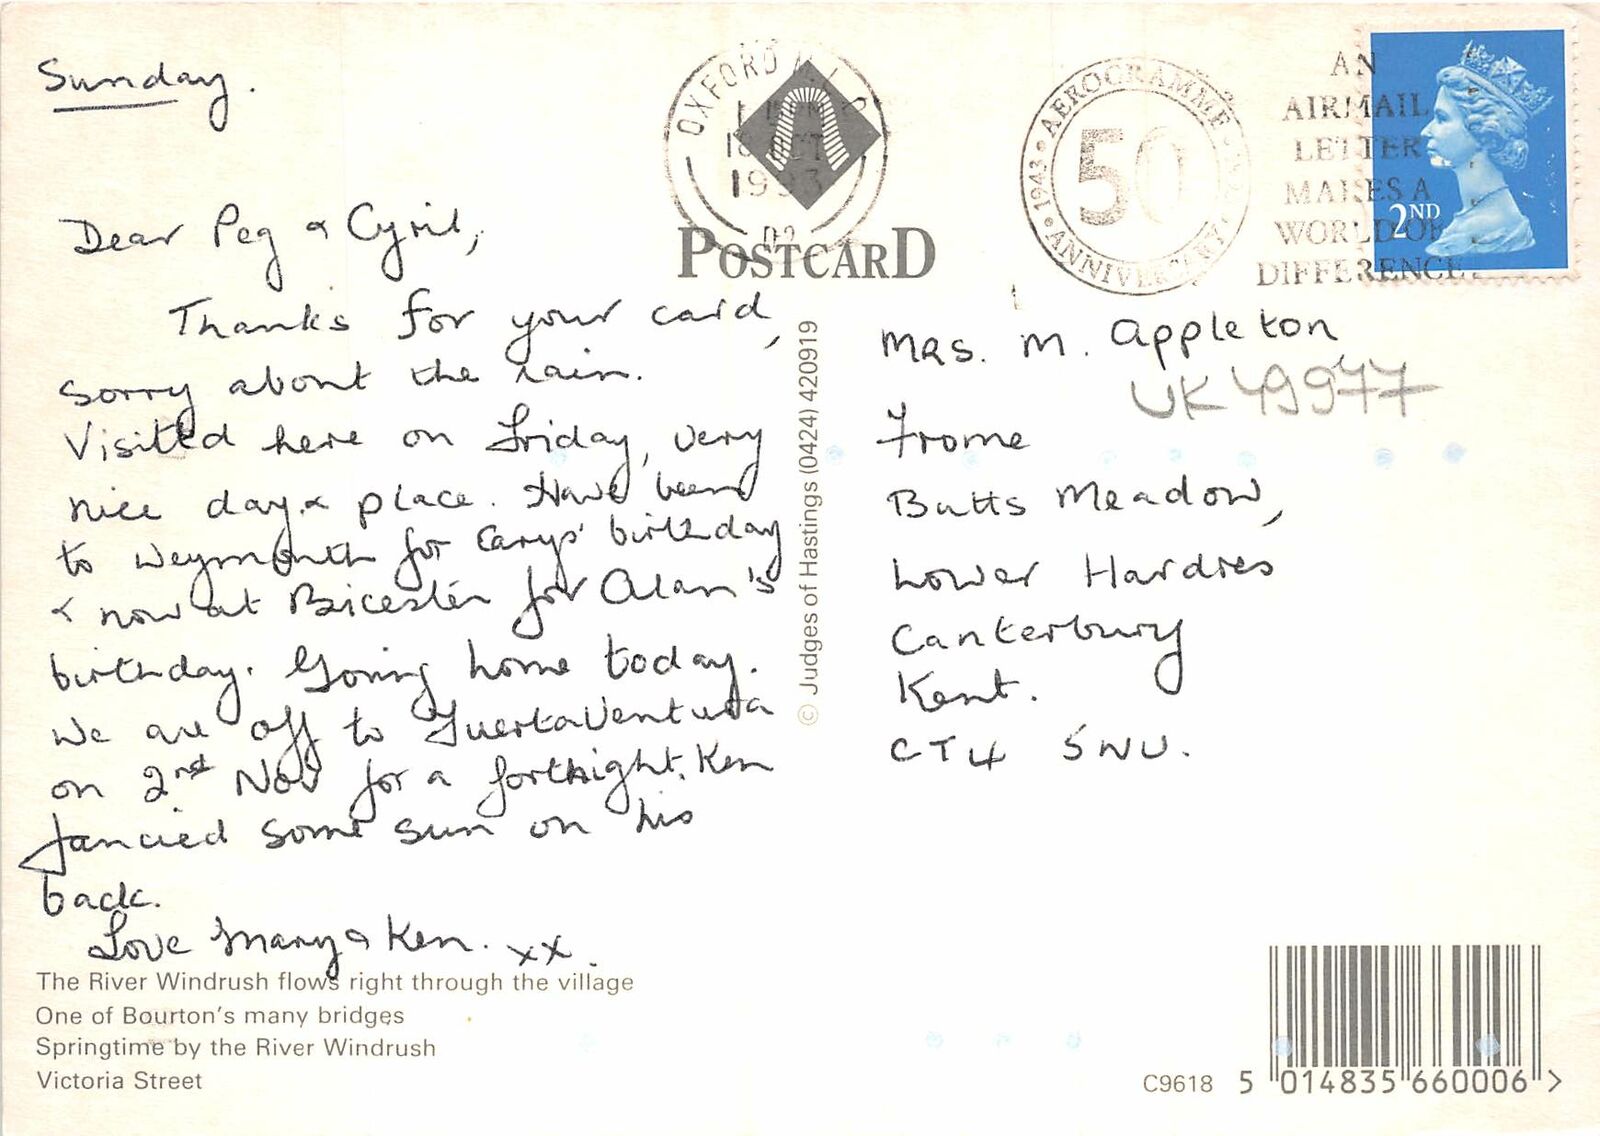 Sunday.
Dear Peg & Cyril,
Thanks for your card,
sorry about the rain.
Visited here on Friday, very
nice day & place. Have been
to Weymouth for Carys' birthday
& now at Bicester for Alan's
birthday. Going home today.
We are off to FuertaVentura
on 2nd Nov for a fortnight. Ken
fancied some sun on his
back.
Love Mary & Ken. xx.
The River Windrush flows right through the village
One of Bourton's many bridges
Springtime by the River Windrush
Victoria Street
© Judges of Hastings (0424) 420919
OXFORD
OCT
1993
POSTCARD
1943 • AEROGRAMME
50
ANNIVERSARY
AN
AIRMAIL
LETTER
MAKES A
WORLD OF
DIFFERENCE
2ND
Mrs. M. Appleton
UK49977
Frome
Butts Meadow,
Lower Hardres
Canterbury
Kent.
CT4 5NU.
C9618 5 014835 660006 >